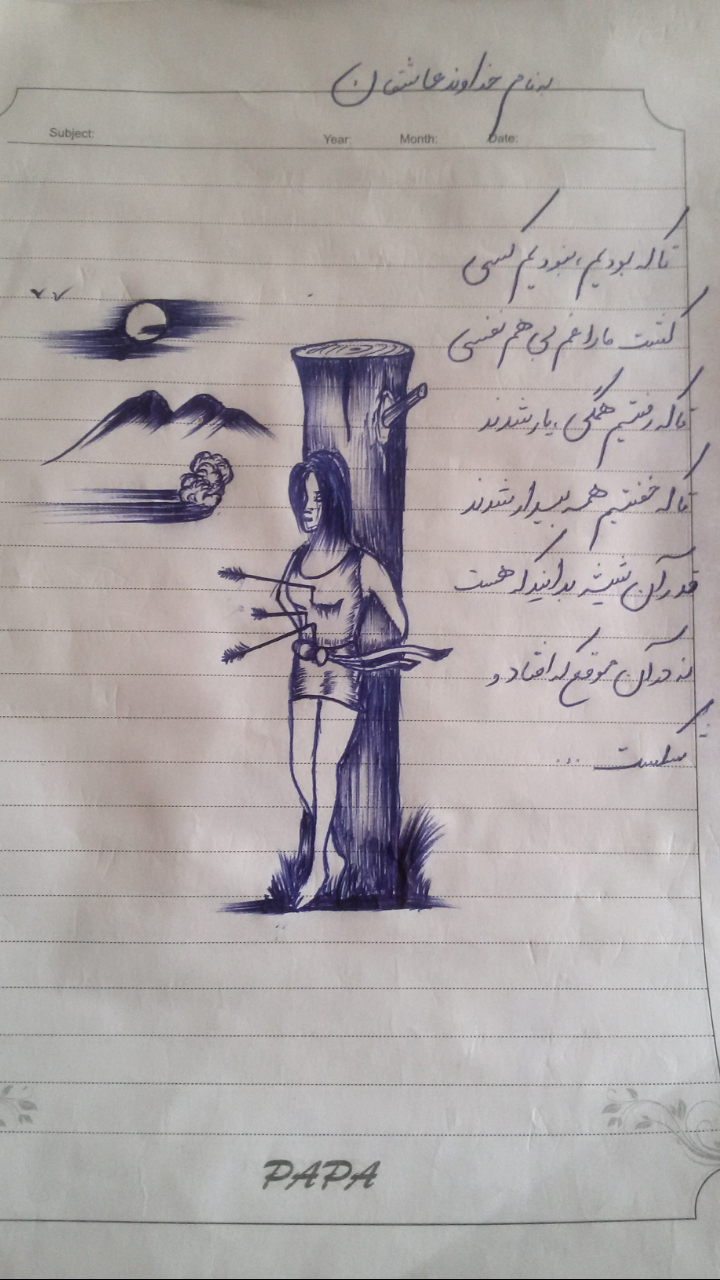 به نام خداوند عاشقان
Subject:
Year:
Month:
Date:
تا که بودیم، نبودیم کسی
کشت ما را غم بی هم نفسی
تا که رفتیم همگی یار شدند
تا که خفتیم همه بیدار شدند
قدر آن شیشه بدانید که هست
نه در آن موقع که افتاد و
شکست ...
PAPA